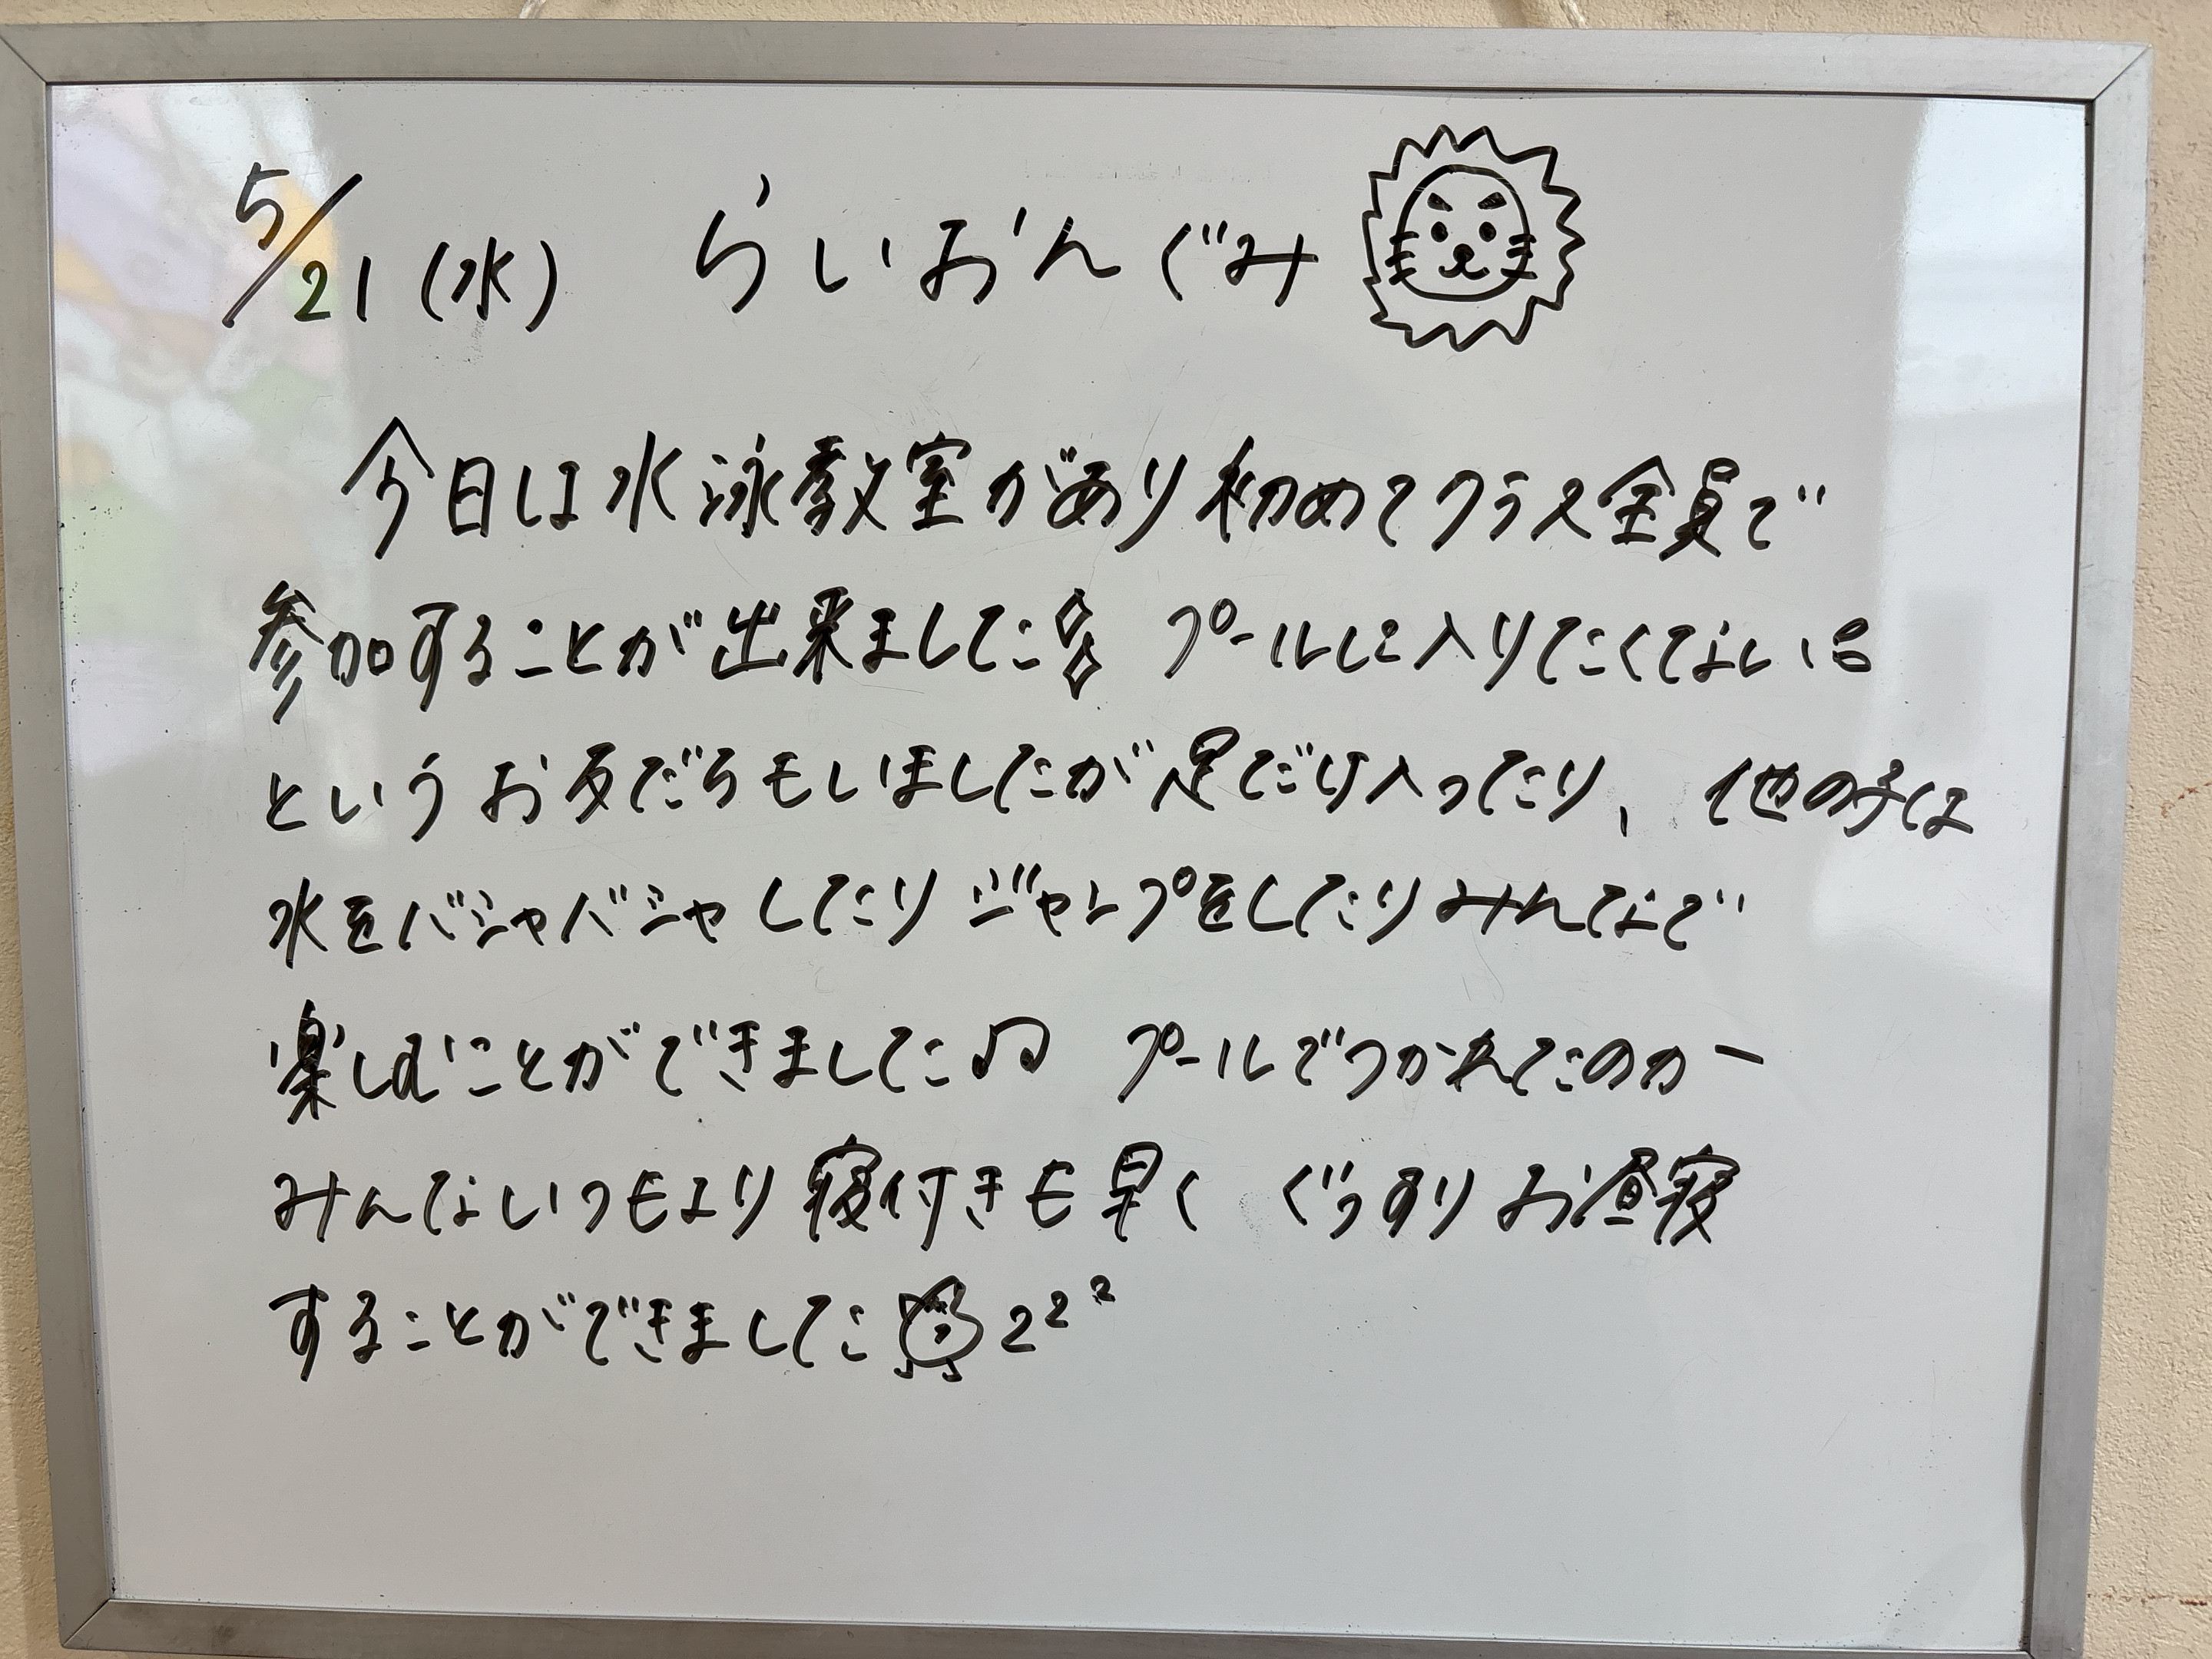 5/21(水) らいおんぐみ
今日は水泳教室があり初めてクラス全員で
参加することが出来ました!! プールに入りたくない。。
というお友だちもいましたが足だけ入ったり、他の子は
水をバシャバシャしたりジャンプをしたりみんなで
楽しむことができました♫ プールでつかれたのかー
みんないつもより寝付きも早く ぐっすりお昼寝
することができました zzz